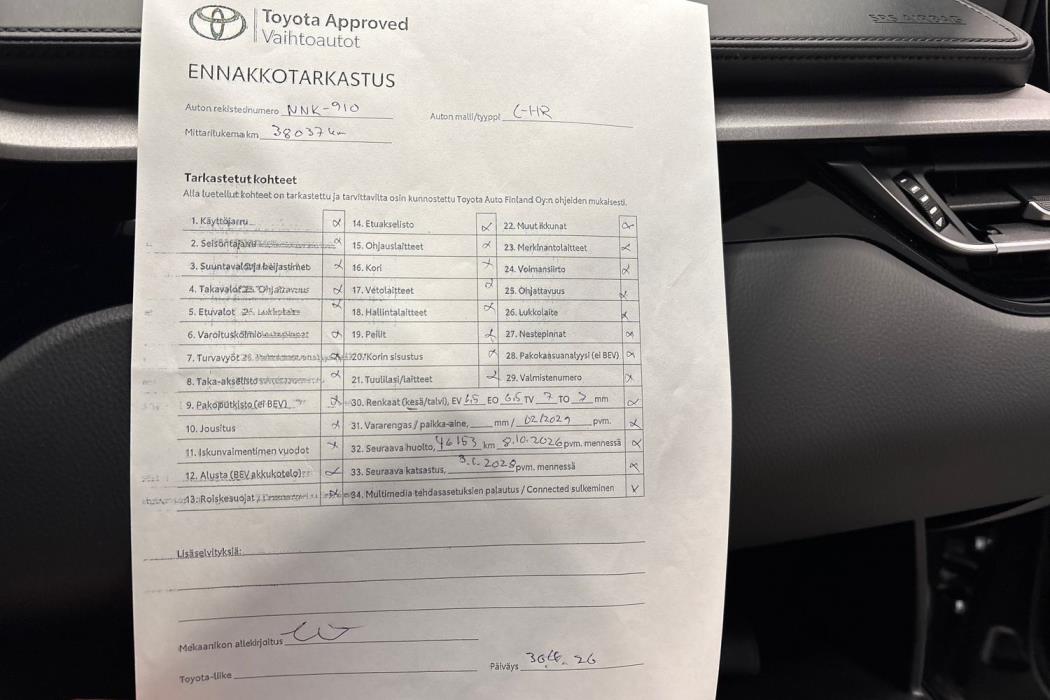 SRS AIRBAG
Toyota Approved
Vaihtoautot
ENNAKKOTARKASTUS
Auton rekisterinumero NNK-910
Auton malli/tyyppi C-HR
Mittarilukema km 38037 km
Tarkastetut kohteet
Alla luetellut kohteet on tarkastettu ja tarvittavilta osin kunnostettu Toyota Auto Finland Oy:n ohjeiden mukaisesti.
1. Käyttöjarru 14. Etuakselisto 22. Muut ikkunat
2. Seisontajarru 15. Ohjauslaitteet 23. Merkinantolaitteet
3. Suuntavalot ja heijastimet 16. Kori 24. Voimansiirto
4. Takavalot 25. Ohjattavuus 17. Vetolaitteet 25. Ohjattavuus
5. Etuvalot 26. Lukkolaite 18. Hallintalaitteet 26. Lukkolaite
6. Varoituskolmio 19. Peilit 27. Nestepinnat
7. Turvavyöt 28. 20. Korin sisustus 28. Pakokaasuanalyysi (ei BEV)
8. Taka-akselisto 21. Tuulilasi/laitteet 29. Valmistenumero
9. Pakoputkisto (ei BEV) 30. Renkaat (kesä/talvi), EV 6,5 EO 6,5 TV 7 TO 7 mm
10. Jousitus 31. Vararengas / paikka-aine, mm / 02/2029 pvm.
11. Iskunvaimentimen vuodot 32. Seuraava huolto, 46153 km 8.10.2026 pvm. mennessä
12. Alusta (BEV akkukotelo) 33. Seuraava katsastus, 3.1.2028 pvm. mennessä
13. Roiskesuojat 34. Multimedia tehdasasetuksien palautus / Connected sulkeminen V
Lisäselvityksiä:
Mekaanikon allekirjoitus
Toyota-liike
Päiväys